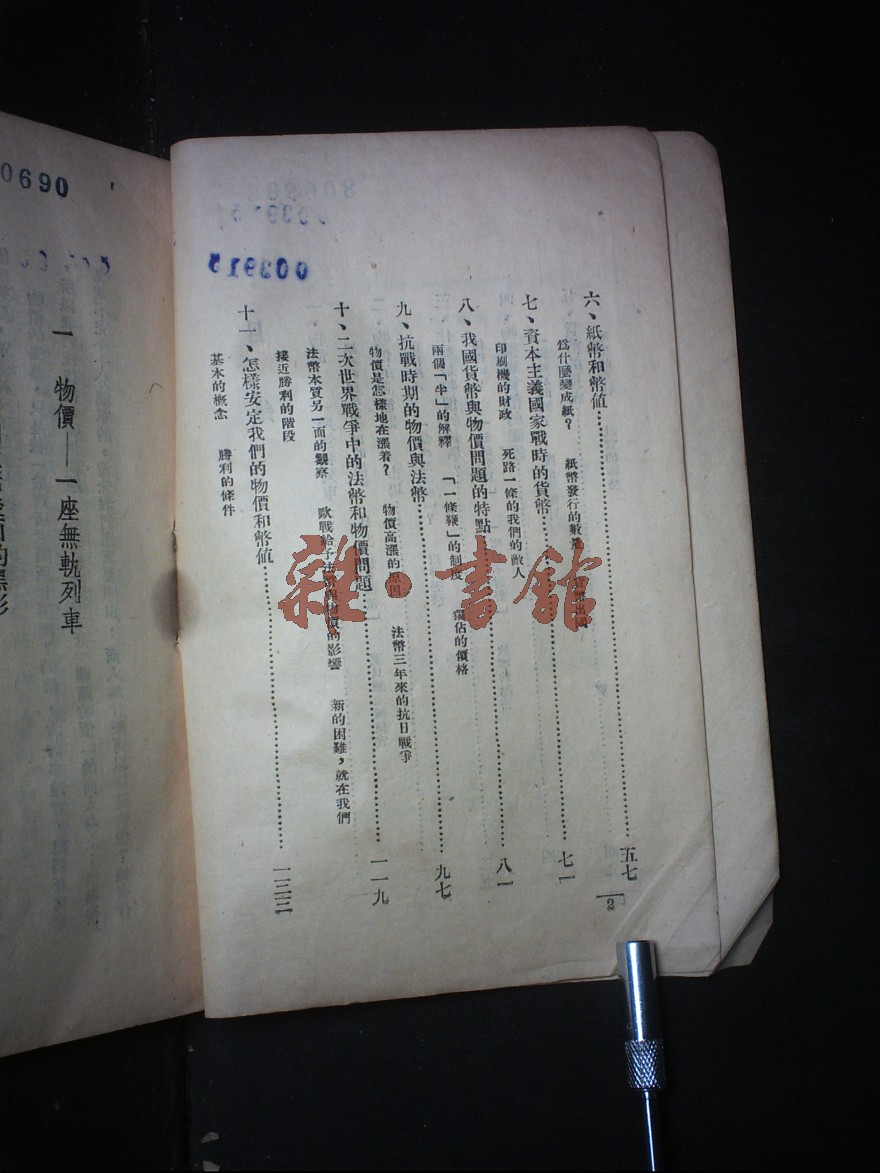 六、紙幣和幣值………五七
爲什麼變成紙? 紙幣發行的數
七、資本主義國家戰時的貨幣………七一
印刷機的財政 死路一條的我們的敵人
八、我國貨幣與物價問題的特點………八一
兩個「半」的解釋 「一條鞭」的制度 獨佔的價格
九、抗戰時期的物價與法幣………九七
物價是怎樣地在漲着? 物價高漲的原因 法幣三年來的抗日戰爭
十、二次世界戰爭中的法幣和物價問題………一一九
法幣本質另一面的觀察 歐戰給予法 的影響 新的困難,就在我們
接近勝利的階段
十一、怎樣安定我們的物價和幣值………一三三
基本的概念 勝利的條件
2
003915
0690
一 物價——一座無軌列車
雜·書館